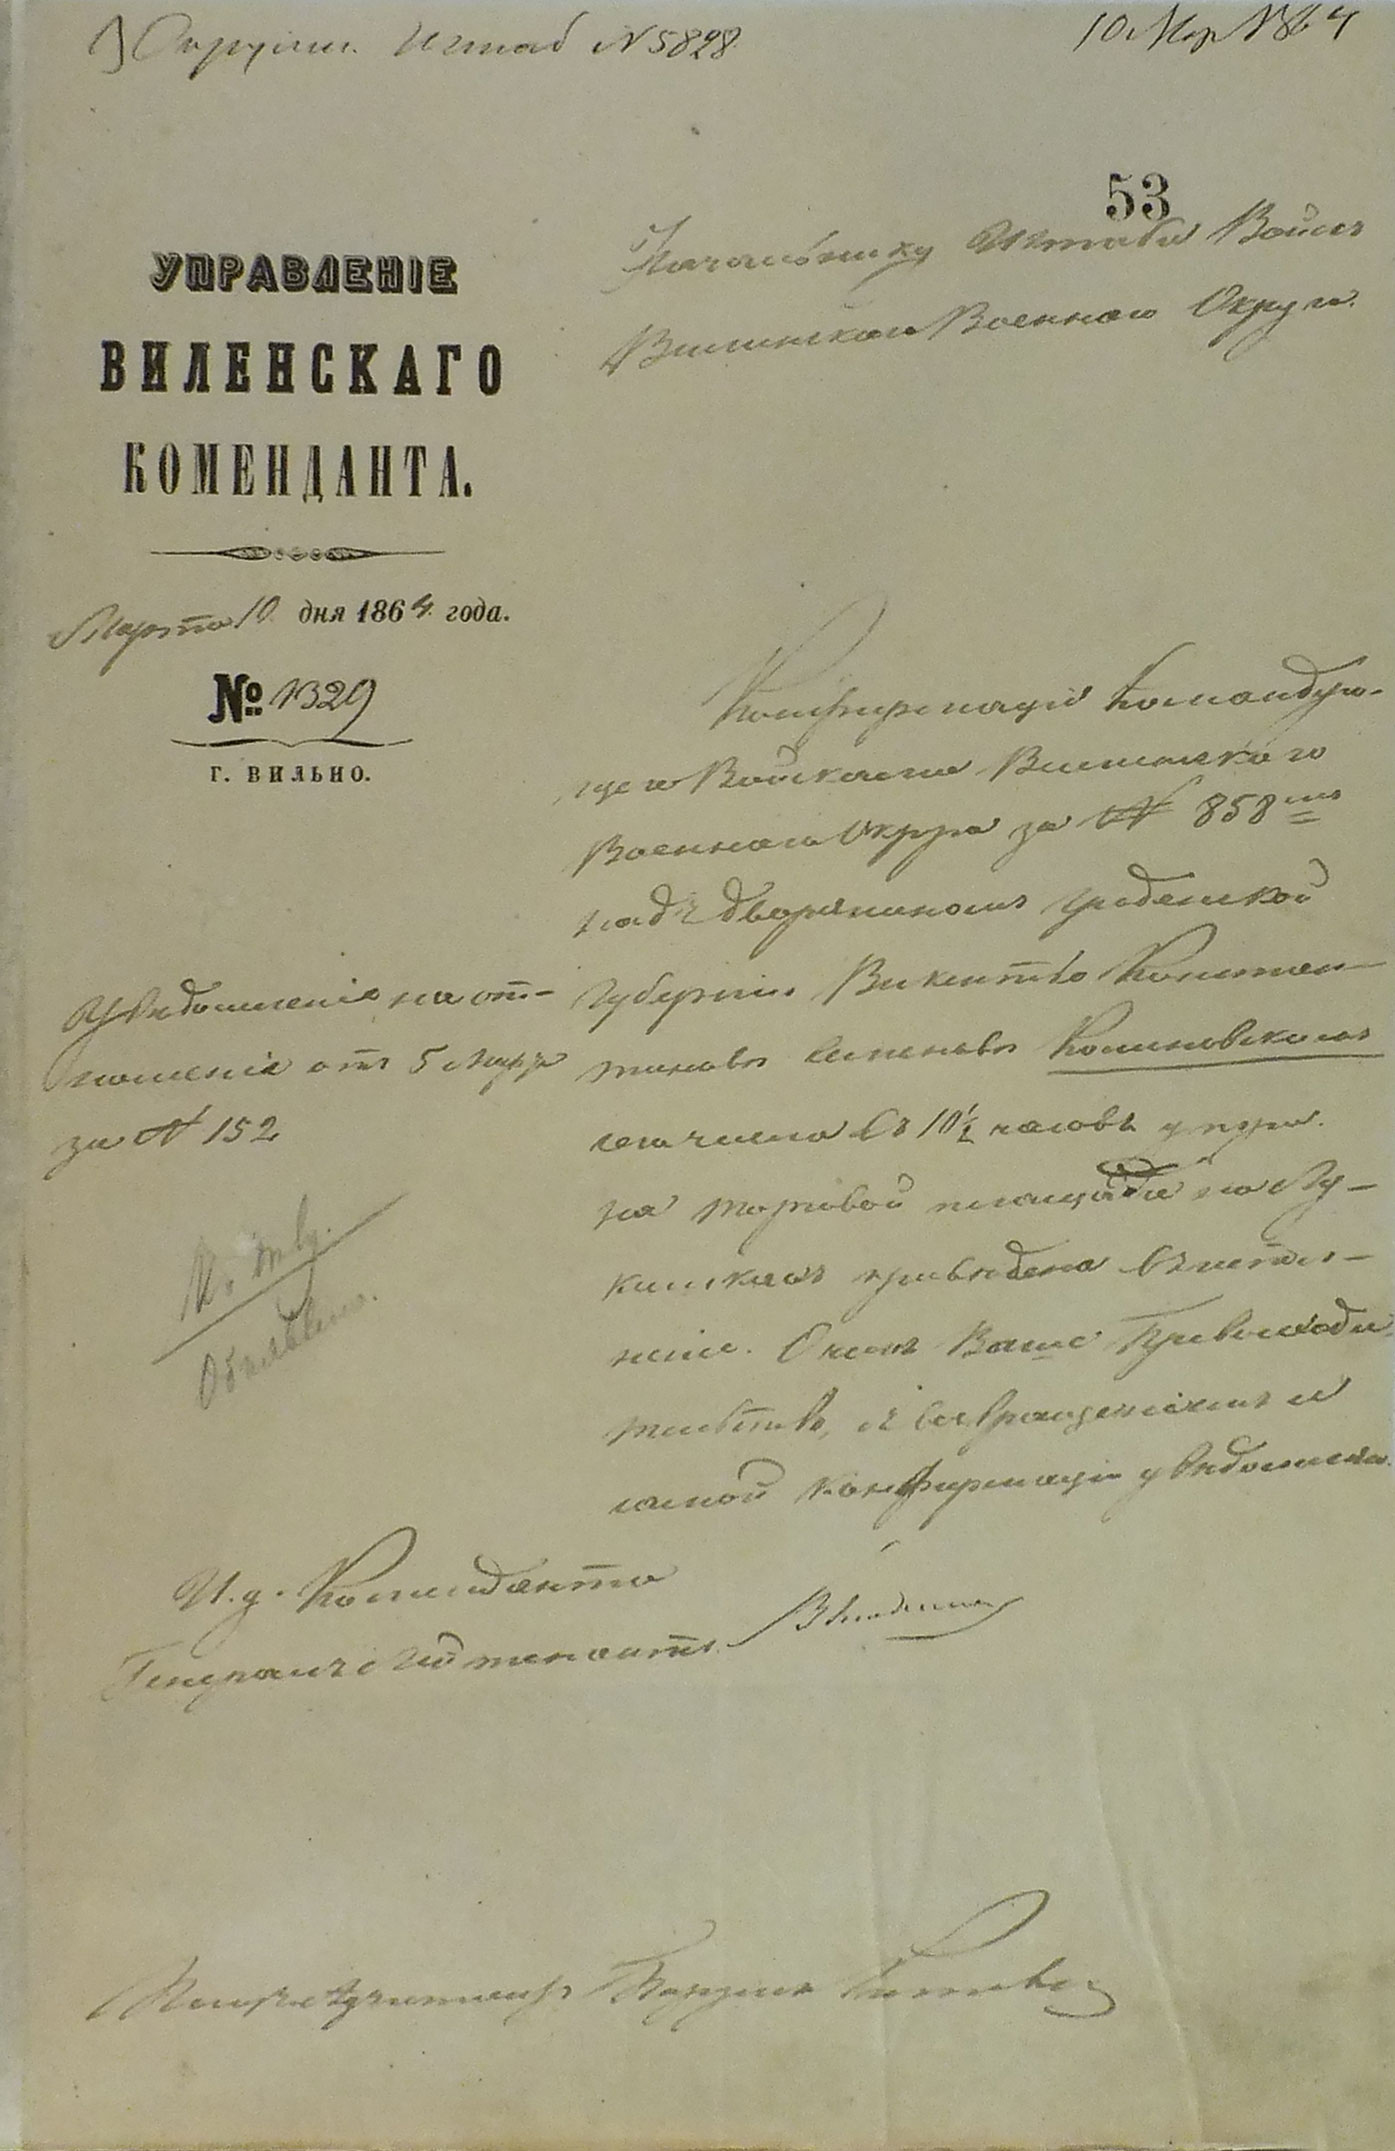 Окружн. Штаб N 5828
10 Мар 1864
53
УПРАВЛЕНІЕ
ВИЛЕНСКАГО
КОМЕНДАНТА.
Марта 10 дня 1864 года.
№ 1329
Г. ВИЛЬНО.
Начальнику Штаба Войскъ
Виленскаго Военнаго Округа.
Увѣдомленіе на от-
ношеніе отъ 5 Марта
за N 152
Объявлено.
Конфирмація Командую-
щаго Войсками Виленскаго
Военнаго Округа за N 858мъ
надъ дворяниномъ Гродненской
Губерніи Викентіемъ Константи-
новымъ Калиновскимъ
сего числа въ 10½ часовъ утра
на торговой площади на Лу-
кишкахъ приведена въ испол-
неніе. О чемъ Ваше Превосходи-
тельство, съ возвращеніемъ
самой конфирмаціи увѣдомляю.
И. д. Коменданта
Генералъ Лейтенантъ
Плацъ Адъютантъ Поручикъ